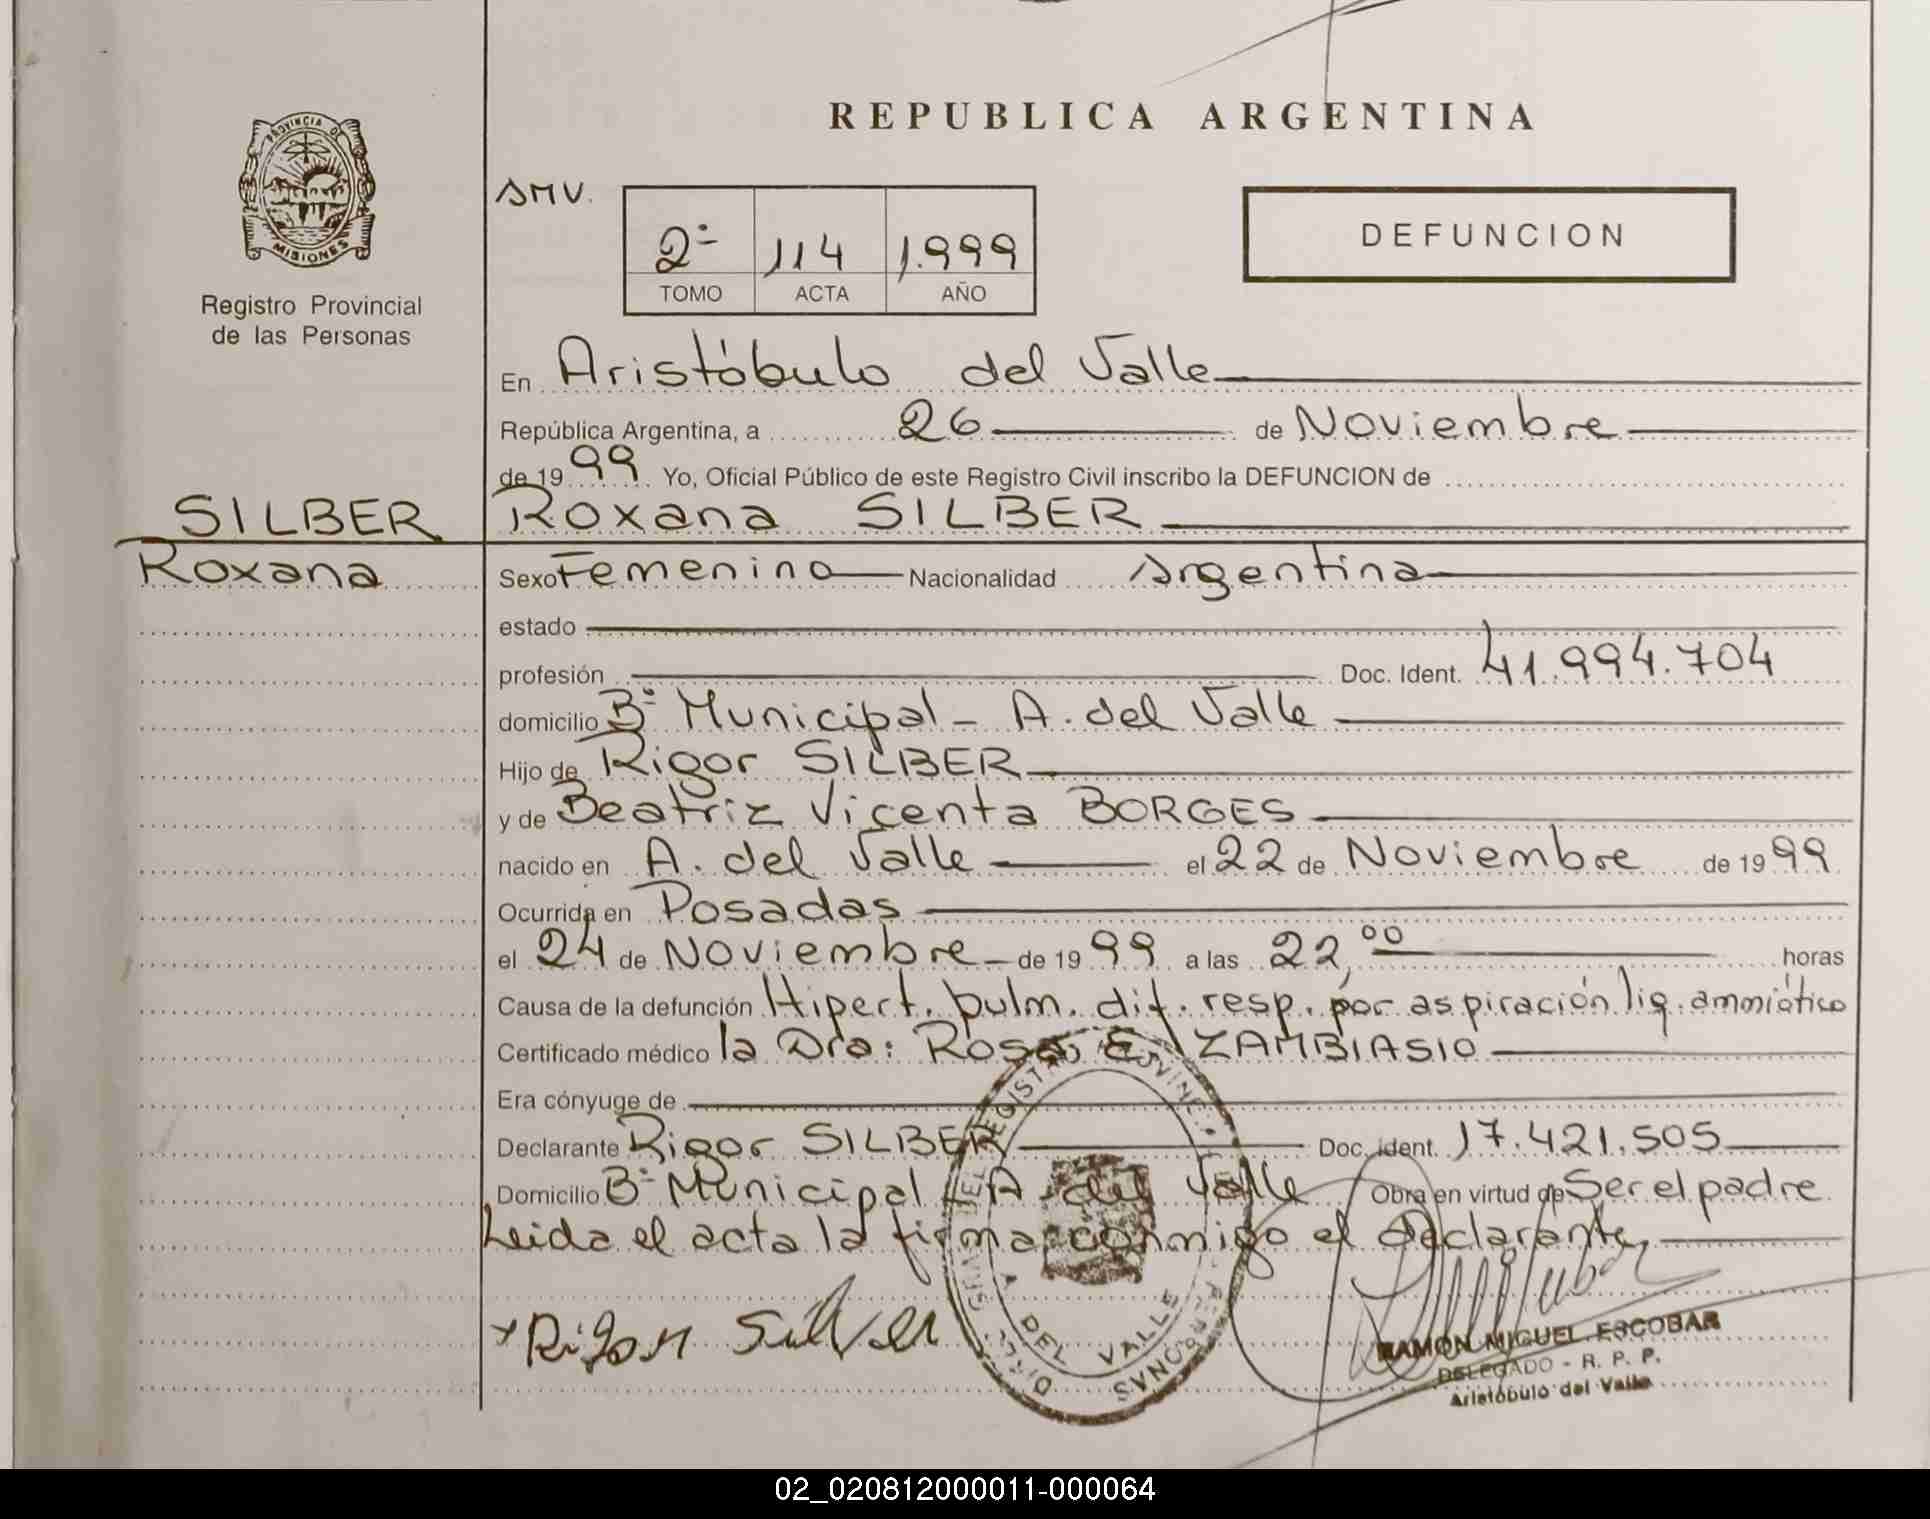 PROVINCIA DE
MISIONES
Registro Provincial
de las Personas
REPUBLICA ARGENTINA
SMV.
2º 114 1.999
TOMO ACTA AÑO
DEFUNCION
En Aristóbulo del Valle
República Argentina, a 26 de Noviembre
de 1999 Yo, Oficial Público de este Registro Civil inscribo la DEFUNCION de
SILBER Roxana SILBER
Roxana Sexo Femenino Nacionalidad Argentina
estado
profesión Doc. Ident. 41.994.704
domicilio Bº Municipal - A. del Valle
Hijo de Rigor SILBER
y de Beatriz Vicenta BORGES
nacido en A. del Valle el 22 de Noviembre de 1999
Ocurrida en Posadas
el 24 de Noviembre de 1999 a las 22,00 horas
Causa de la defunción Hipert. pulm. dif. resp. por aspiración liq. ammiótico
Certificado médico la Dra: Rosa E. ZAMBIASIO
Era cónyuge de
Declarante Rigor SILBER Doc. ident. 17.421.505
Domicilio Bº Municipal - A. del Valle Obra en virtud de Ser el padre
Leida el acta la firma conmigo el declarante,
x Rigor Silver
DEL VALLE
RAMON MIGUEL ESCOBAR
DELEGADO - R. P. P.
Aristóbulo del Valle
02_020812000011-000064